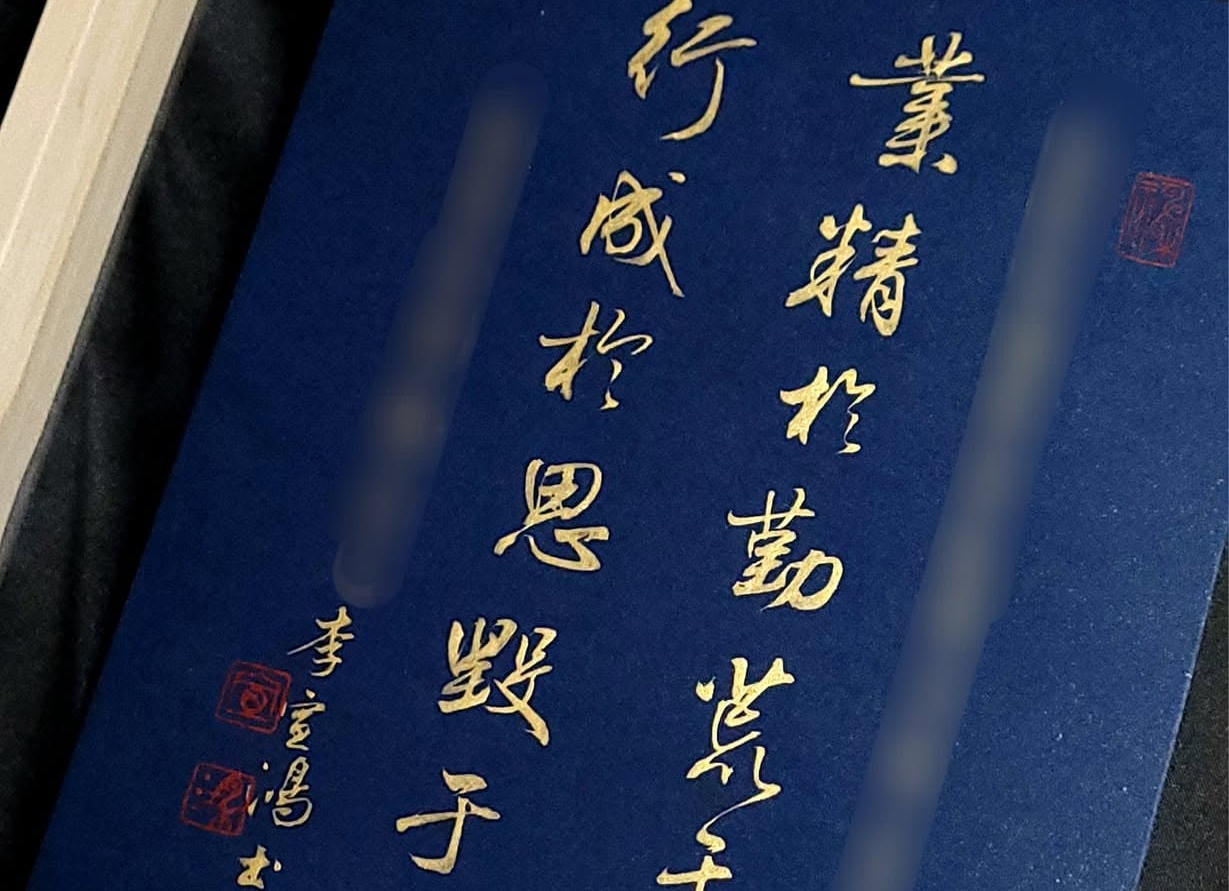 業精於勤荒于
行成於思毀于
李宣鴻书